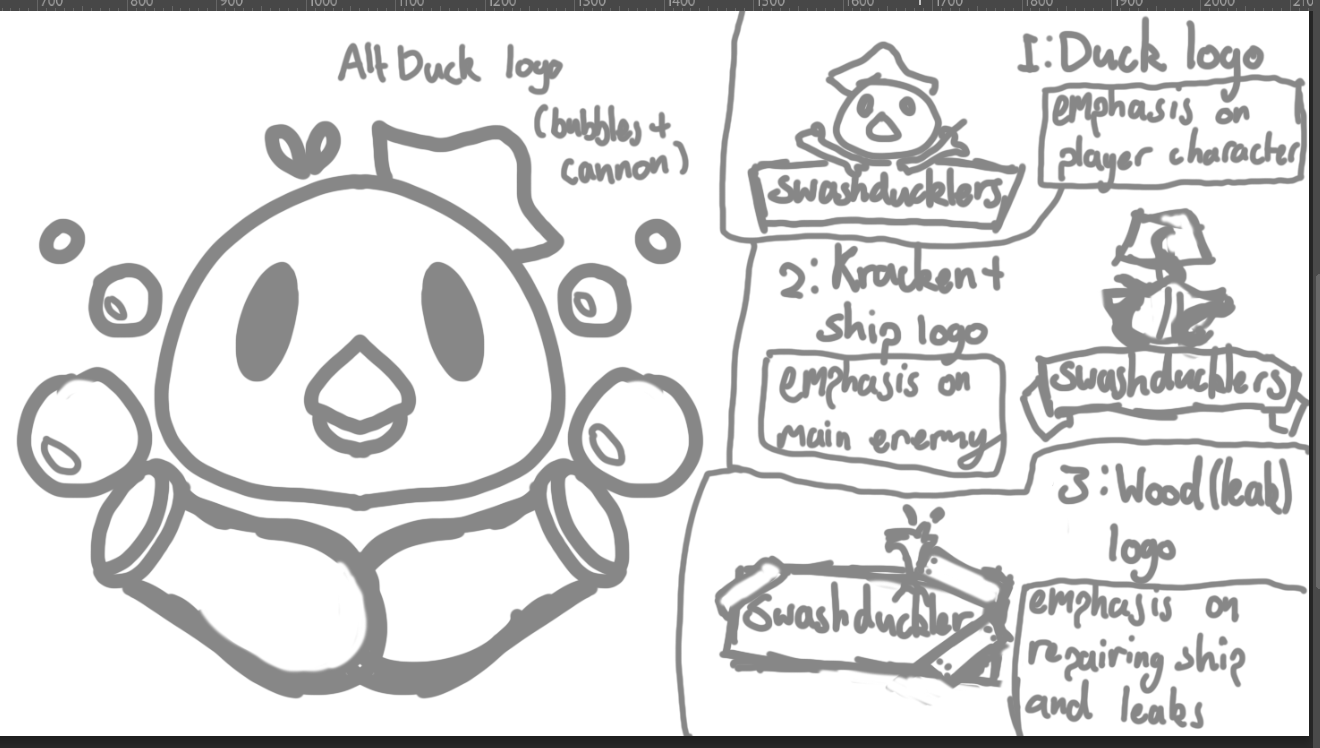 700 800 900 1000 1100 1200 1300 1400 1500 1600 1700 1800 1900 2000 210
Alt Duck logo
(bubbles +
cannon)
1: Duck logo
emphasis on
player character
swashducklers
2: Kracken +
ship logo
emphasis on
main enermy
swashducklers
3: Wood (leak)
logo
emphasis on
repairing ship
and leaks
Swashduckler